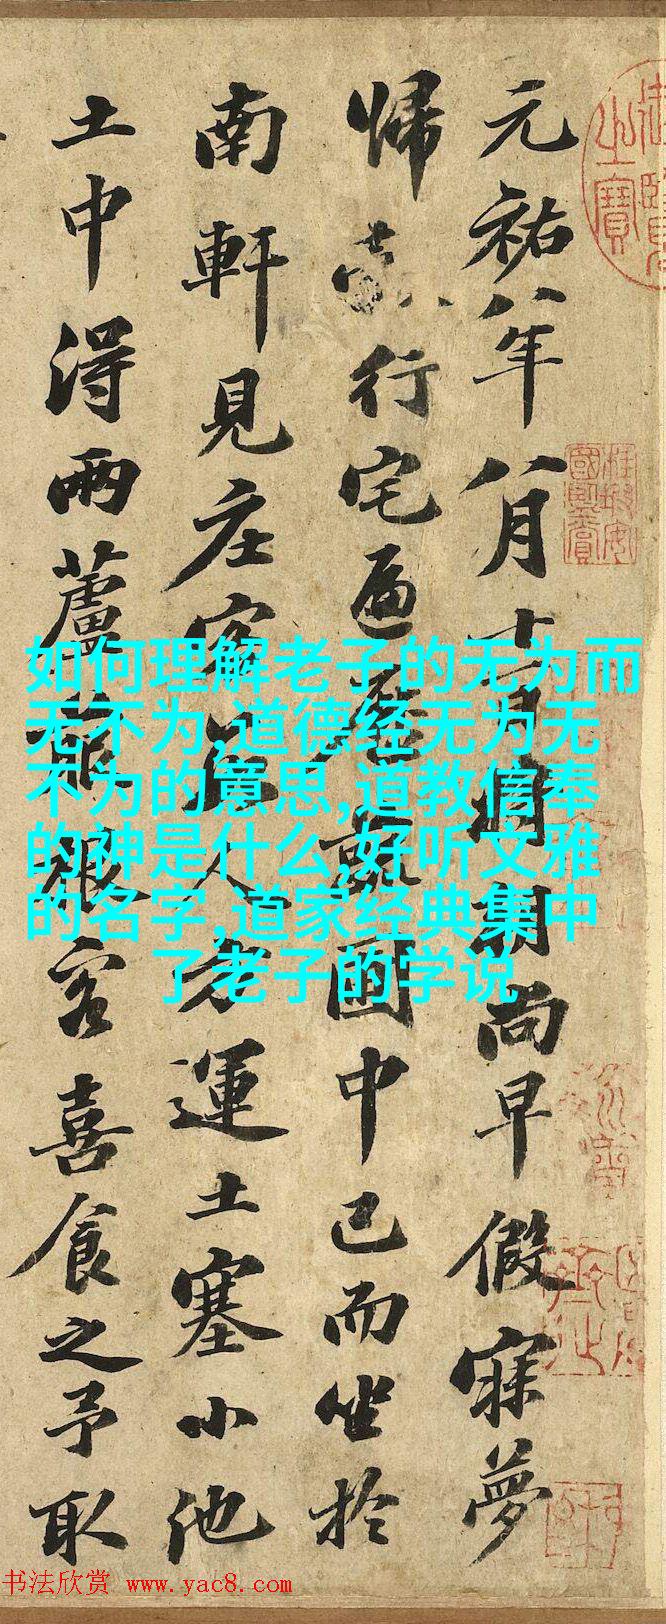 元祐八年八月十一日將朝尚早假寐夢
帰行宅遍歷蔬園中已而坐於
南軒見庄客數人方運土塞小池
土中得兩蘆菔根客喜食之予取
如何理解老子的无为而
无不为,道德经无为无
不为的意思,道教信奉
的神是什么,好听文雅
的名字,道家经典集中
了老子的学说
书法欣赏 www.yac8.com